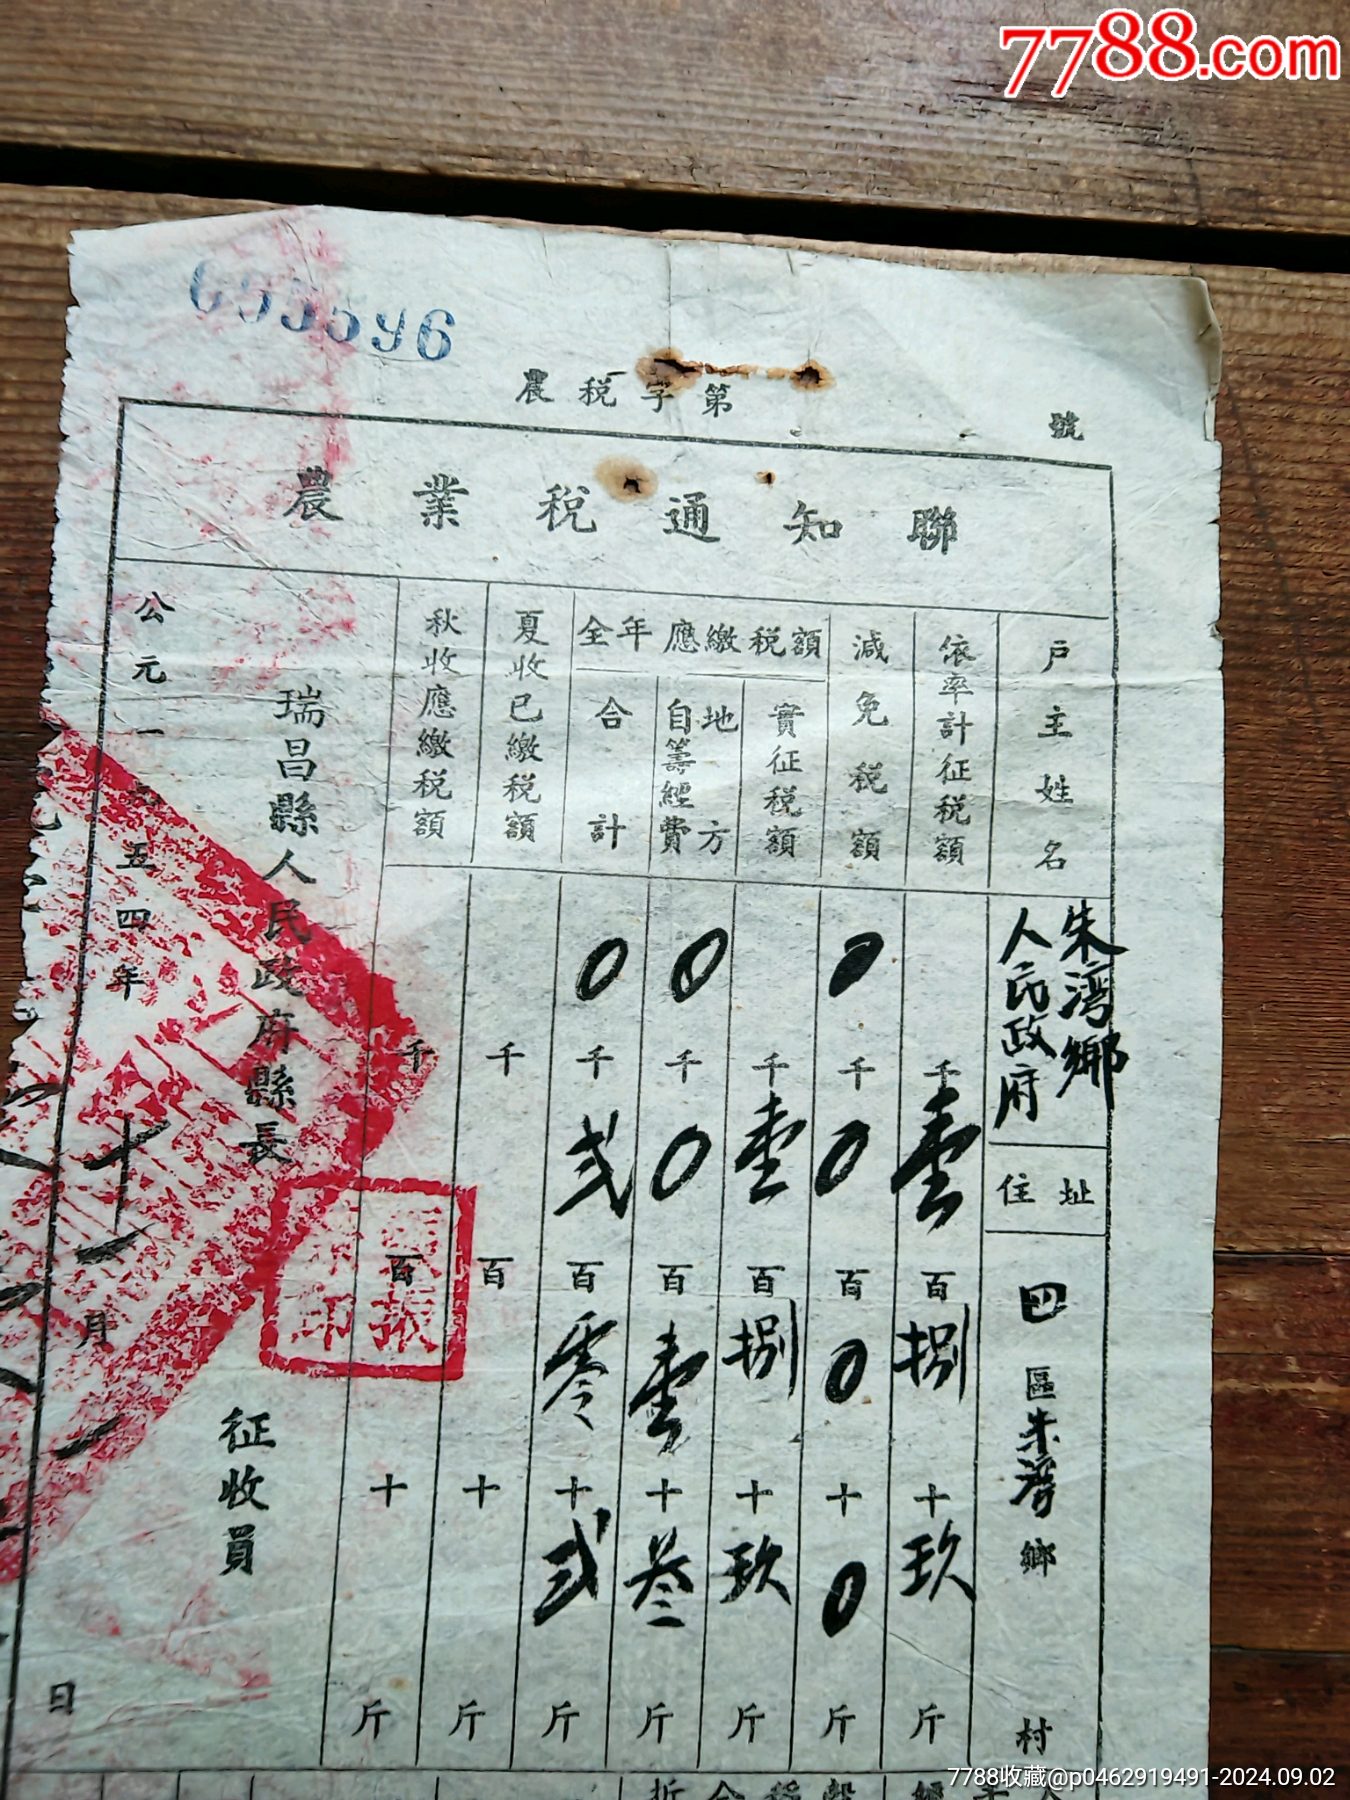 7788.com
695596
農税字第 號
農業税通知聯
戶主姓名
朱湾鄉
人民政府
住址
四區朱湾鄉
村
依率計征税額
千壹百捌十玖斤
減免税額
0千0百0十0斤
全年應繳税額
實征税額
千壹百捌十玖斤
地方
自籌經費
0千0百壹十叁斤
合計
0千弍百零十弍斤
夏收已繳税額
千百十斤
秋收應繳税額
千百十斤
瑞昌縣人民政府縣長
征收員
印振
公元一九五四年十一月一日
7788收藏@p0462919491-2024.09.02